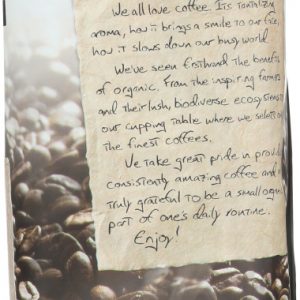 We all love coffee. Its tantalizing
aroma, how it brings a smile to our face,
how it slows down our busy world
We've seen firsthand the benefits
of organic. From the inspiring farmers
and their lush, biodiverse ecosystems to
our cupping table where we select
the finest coffees.
We take great pride in
consistently amazing coffee and
truly grateful to be a small
part of one's daily routine.
Enjoy!